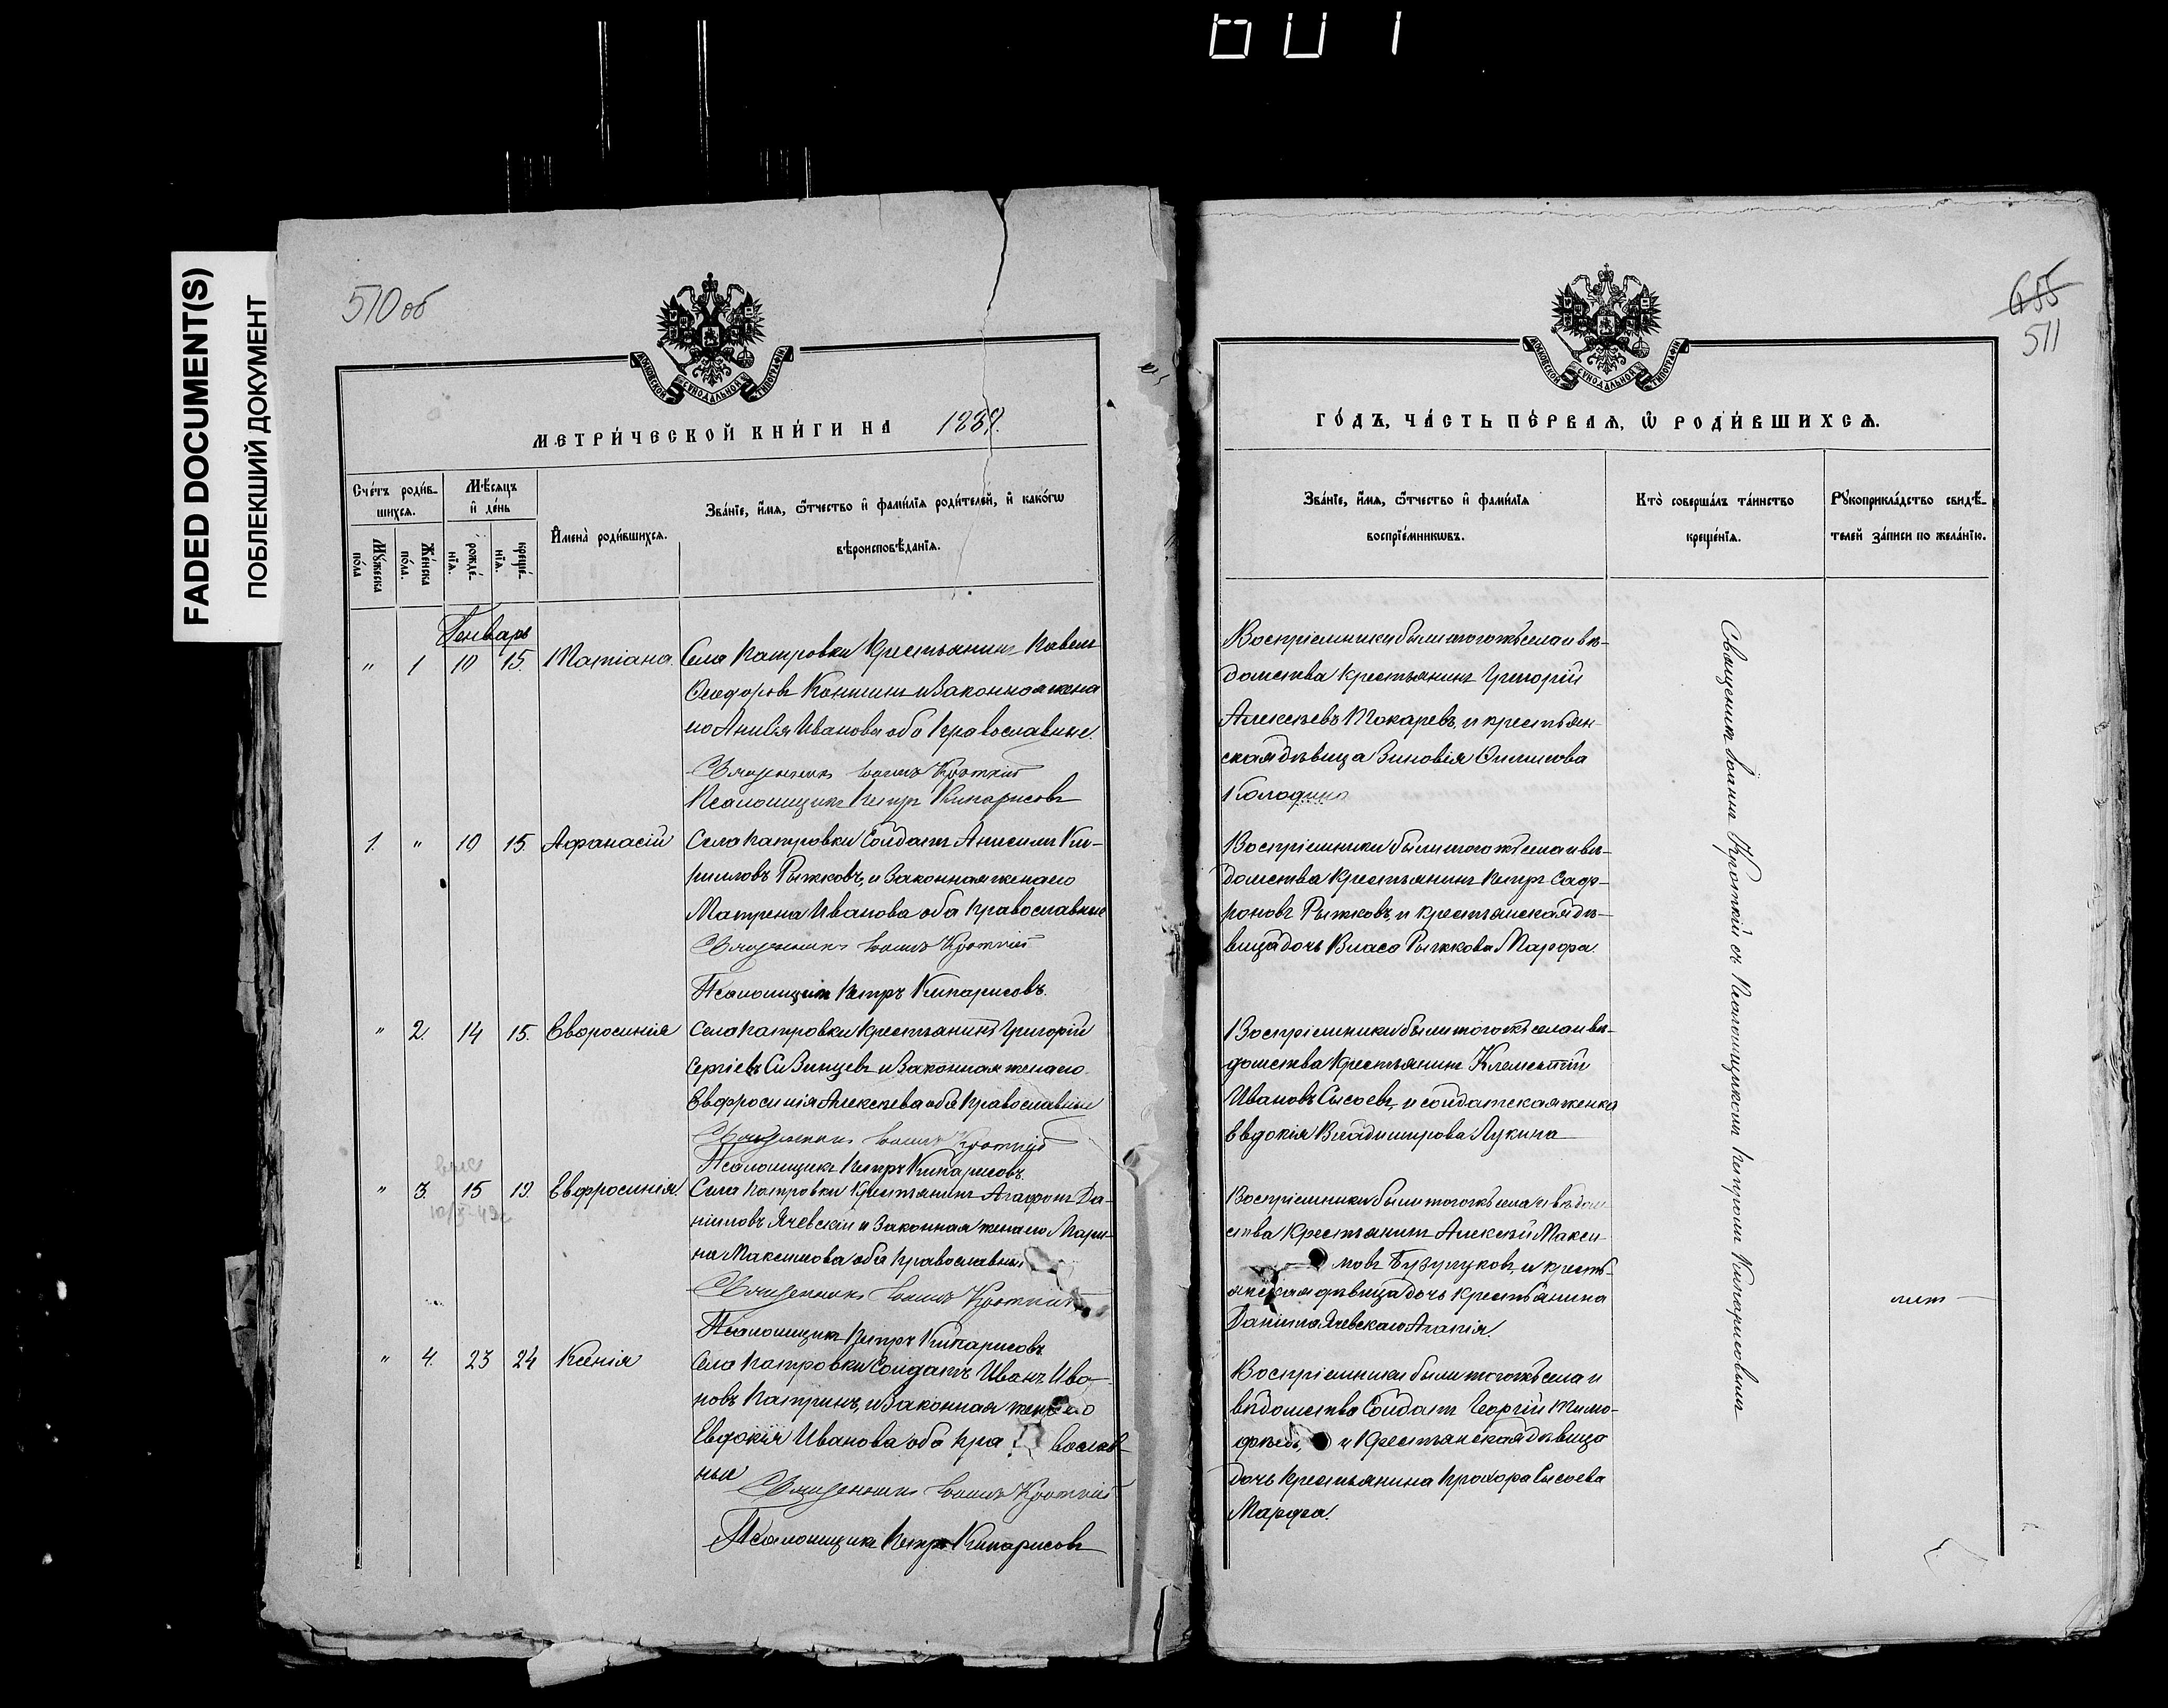 601
FADED DOCUMENT(S)
ПОБЛЕКШИЙ ДОКУМЕНТ
510 об
МОСКОВСКОЙ СѴНОДАЛЬНОЙ ТИПОГРАФІИ
МЕТРИ́ЧЕСКОЙ КНИ́ГИ НА 1889.
Сче́тъ роди́в-
шихсѧ.
Мѣ́сѧцъ
и҆ де́нь
Мꙋ́жеска
по́ла
Же́нска
по́ла.
рожде́-
нїѧ.
креще́-
нїѧ.
И҆мена̀ роди́вшихсѧ.
Зва́нїе, и҆́мѧ, ѻ҆́тчество и҆ фами́лїѧ роди́телей, и҆ како́гѡ
вѣроисповѣ́данїѧ.
Генварь
" 1 10 15. Татіана. Села Патровки Крестьянинъ Павелъ
Ѳеодоровъ Конкинъ и Законная жена
его Анисія Иванова оба Православные.
Священникъ Іоаннъ Кроткій
Псаломщикъ Петръ Кипарисовъ
1. " 10 15. Афанасій Села Патровки Солдатъ Анисимъ Ки-
рилловъ Рыжковъ, и Законная жена его
Матрена Иванова оба Православные
Священникъ Іоаннъ Кроткій
Псаломщикъ Петръ Кипарисовъ.
" 2. 14 15. Евфросинія Села Патровки Крестьянинъ Григорій
Сергіевъ Сивинцевъ и Законная жена его
Евфросинія Алексѣева оба Православные
Священникъ Іоаннъ Кроткій
Псаломщикъ Петръ Кипарисовъ.
" 3. 15 19. Евфросинія. Села Патровки Крестьянинъ Агафонъ Да-
ниловъ Ячевскій и Законная жена его Мари-
на Максимова оба Православные
Священникъ Іоаннъ Кроткій
Псаломщикъ Петръ Кипарисовъ.
" 4. 23 24 Ксенія Села Патровки Солдатъ Иванъ Ива-
новъ Патринъ, и Законная жена его
Евдокія Иванова оба Пра вослав-
ные
Священникъ Іоаннъ Кроткій
Псаломщикъ Петръ Кипарисовъ
655
511
МОСКОВСКОЙ СѴНОДАЛЬНОЙ ТИПОГРАФІИ
ГО́ДЪ, ЧА́СТЬ ПЕ́РВАѦ, Ѡ҆ РОДИ́ВШИХСѦ.
Зва́нїе, и҆́мѧ, ѻ҆́тчество и҆ фами́лїѧ
воспрїе́мникѡвъ.
Кто̀ соверша́лъ та́инство
креще́нїѧ.
Рꙋкоприкла́дство свидѣ́-
телей за́писи по жела́нїю.
Воспріемники были того жъ села и вѣ-
домства Крестьянинъ Григорій
Алексѣевъ Токаревъ, и крестьян-
ская дѣвица Зиновія Филипова
Володина
Воспріемники были того жъ села и вѣ-
домства Крестьянинъ Петръ Саф-
роновъ Рыжковъ, и крестьянская дѣ-
вица дочь Власа Рыжкова Марфа.
Воспріемники были того жъ села и вѣ-
домства Крестьянинъ Клементій
Ивановъ Сысоевъ, и солдатская женка
Евдокія Владимирова Лукина
Воспріемники были того жъ села и вѣдом-
ства Крестьянинъ Алексѣй Макси-
мовъ Бузулуковъ, и кресть-
янская дѣвица дочь Крестьянина
Данила Ячевскаго Агапія.
Воспріемники были того жъ села и
вѣдомства Солдатъ Георгій Тимо-
фѣевъ, и Крестьянская дѣвица
дочь Крестьянина Прохора Сысоева
Марфа.
Священникъ Іоаннъ Кроткій съ Псаломщикомъ Петромъ Кипарисовымъ